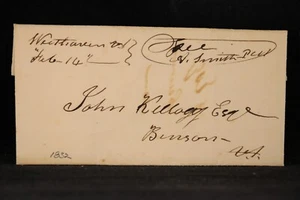 Westhaven Vt
Feb 14th
Free
A. Smith P.M
John Kellogg Esqr
Benson
Vt.
1832